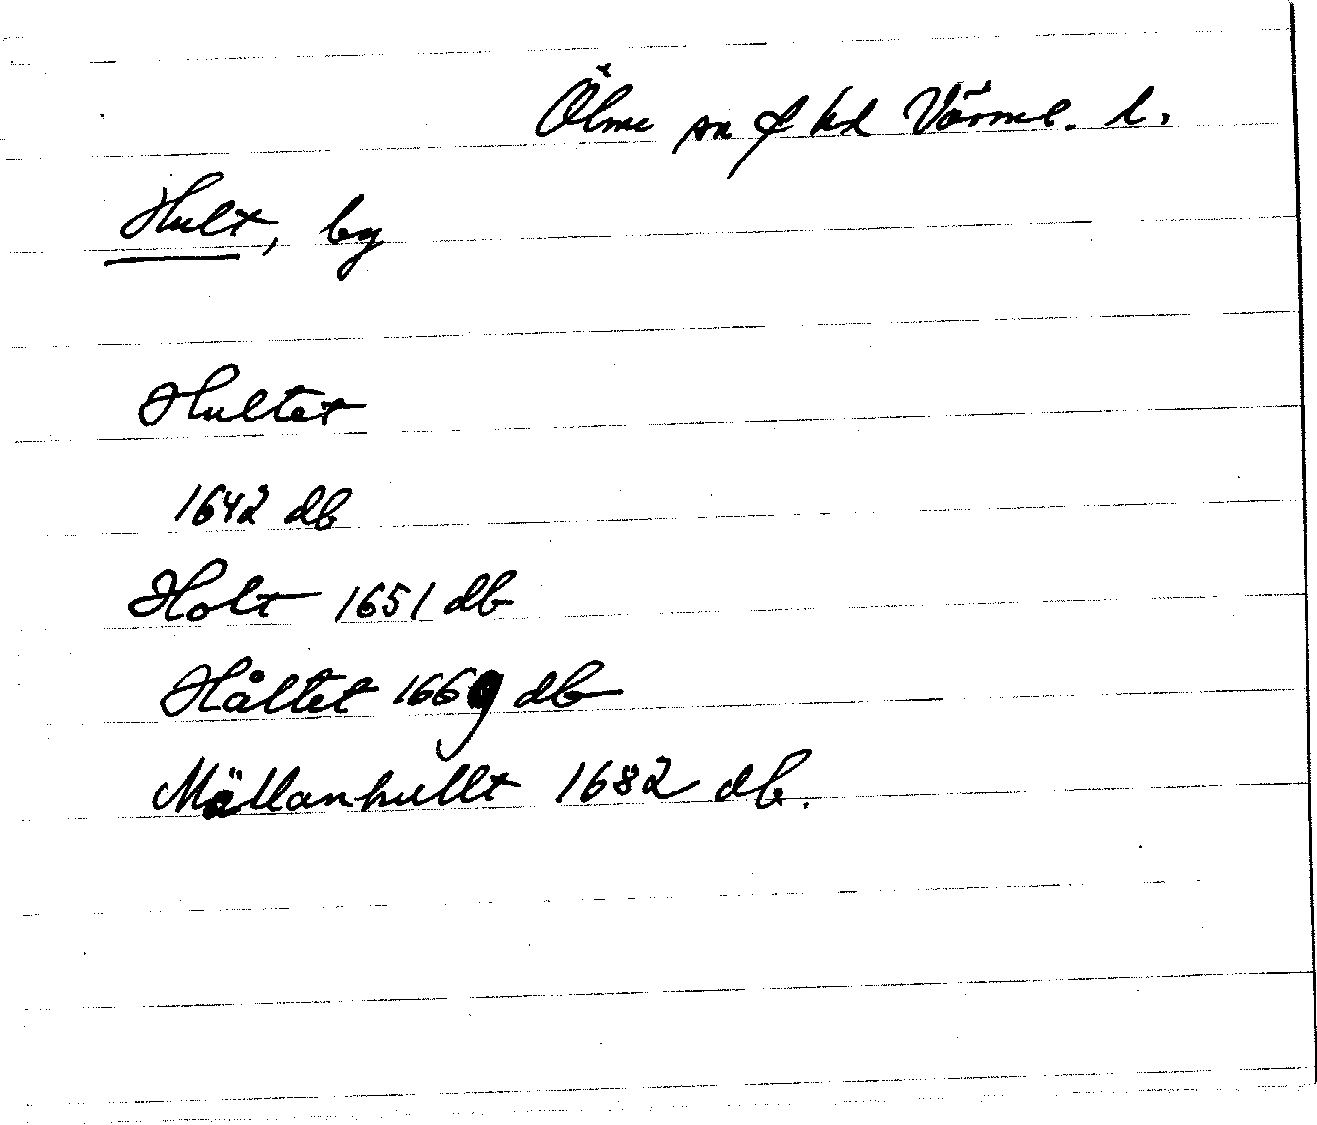 Ölme sn o hd Värml. l.
Hult, by
Hultet
1642 db
Holt 1651 db
Håltet 1669 db
Mällanhullt 1682 db.